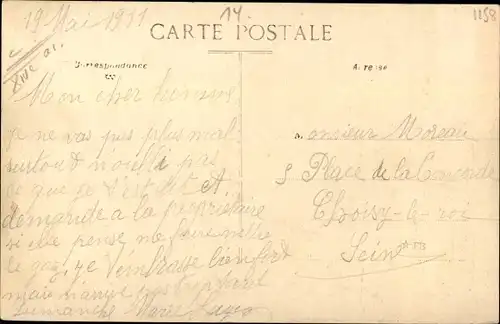 19 Mai 1911
14
1158
CARTE POSTALE
Correspondance
Adresse
Mon cher homme
je ne vas pas plus mal
surtout n'oublie pas
ce que je t'est dit
demande a la propriétaire
si elle pense me faire mettre
le gaz, je t'embrasse bien fort
mais
Dimanche Marie
Monsieur Moreau
5 Place de la
Choisy-le-roi
Seine